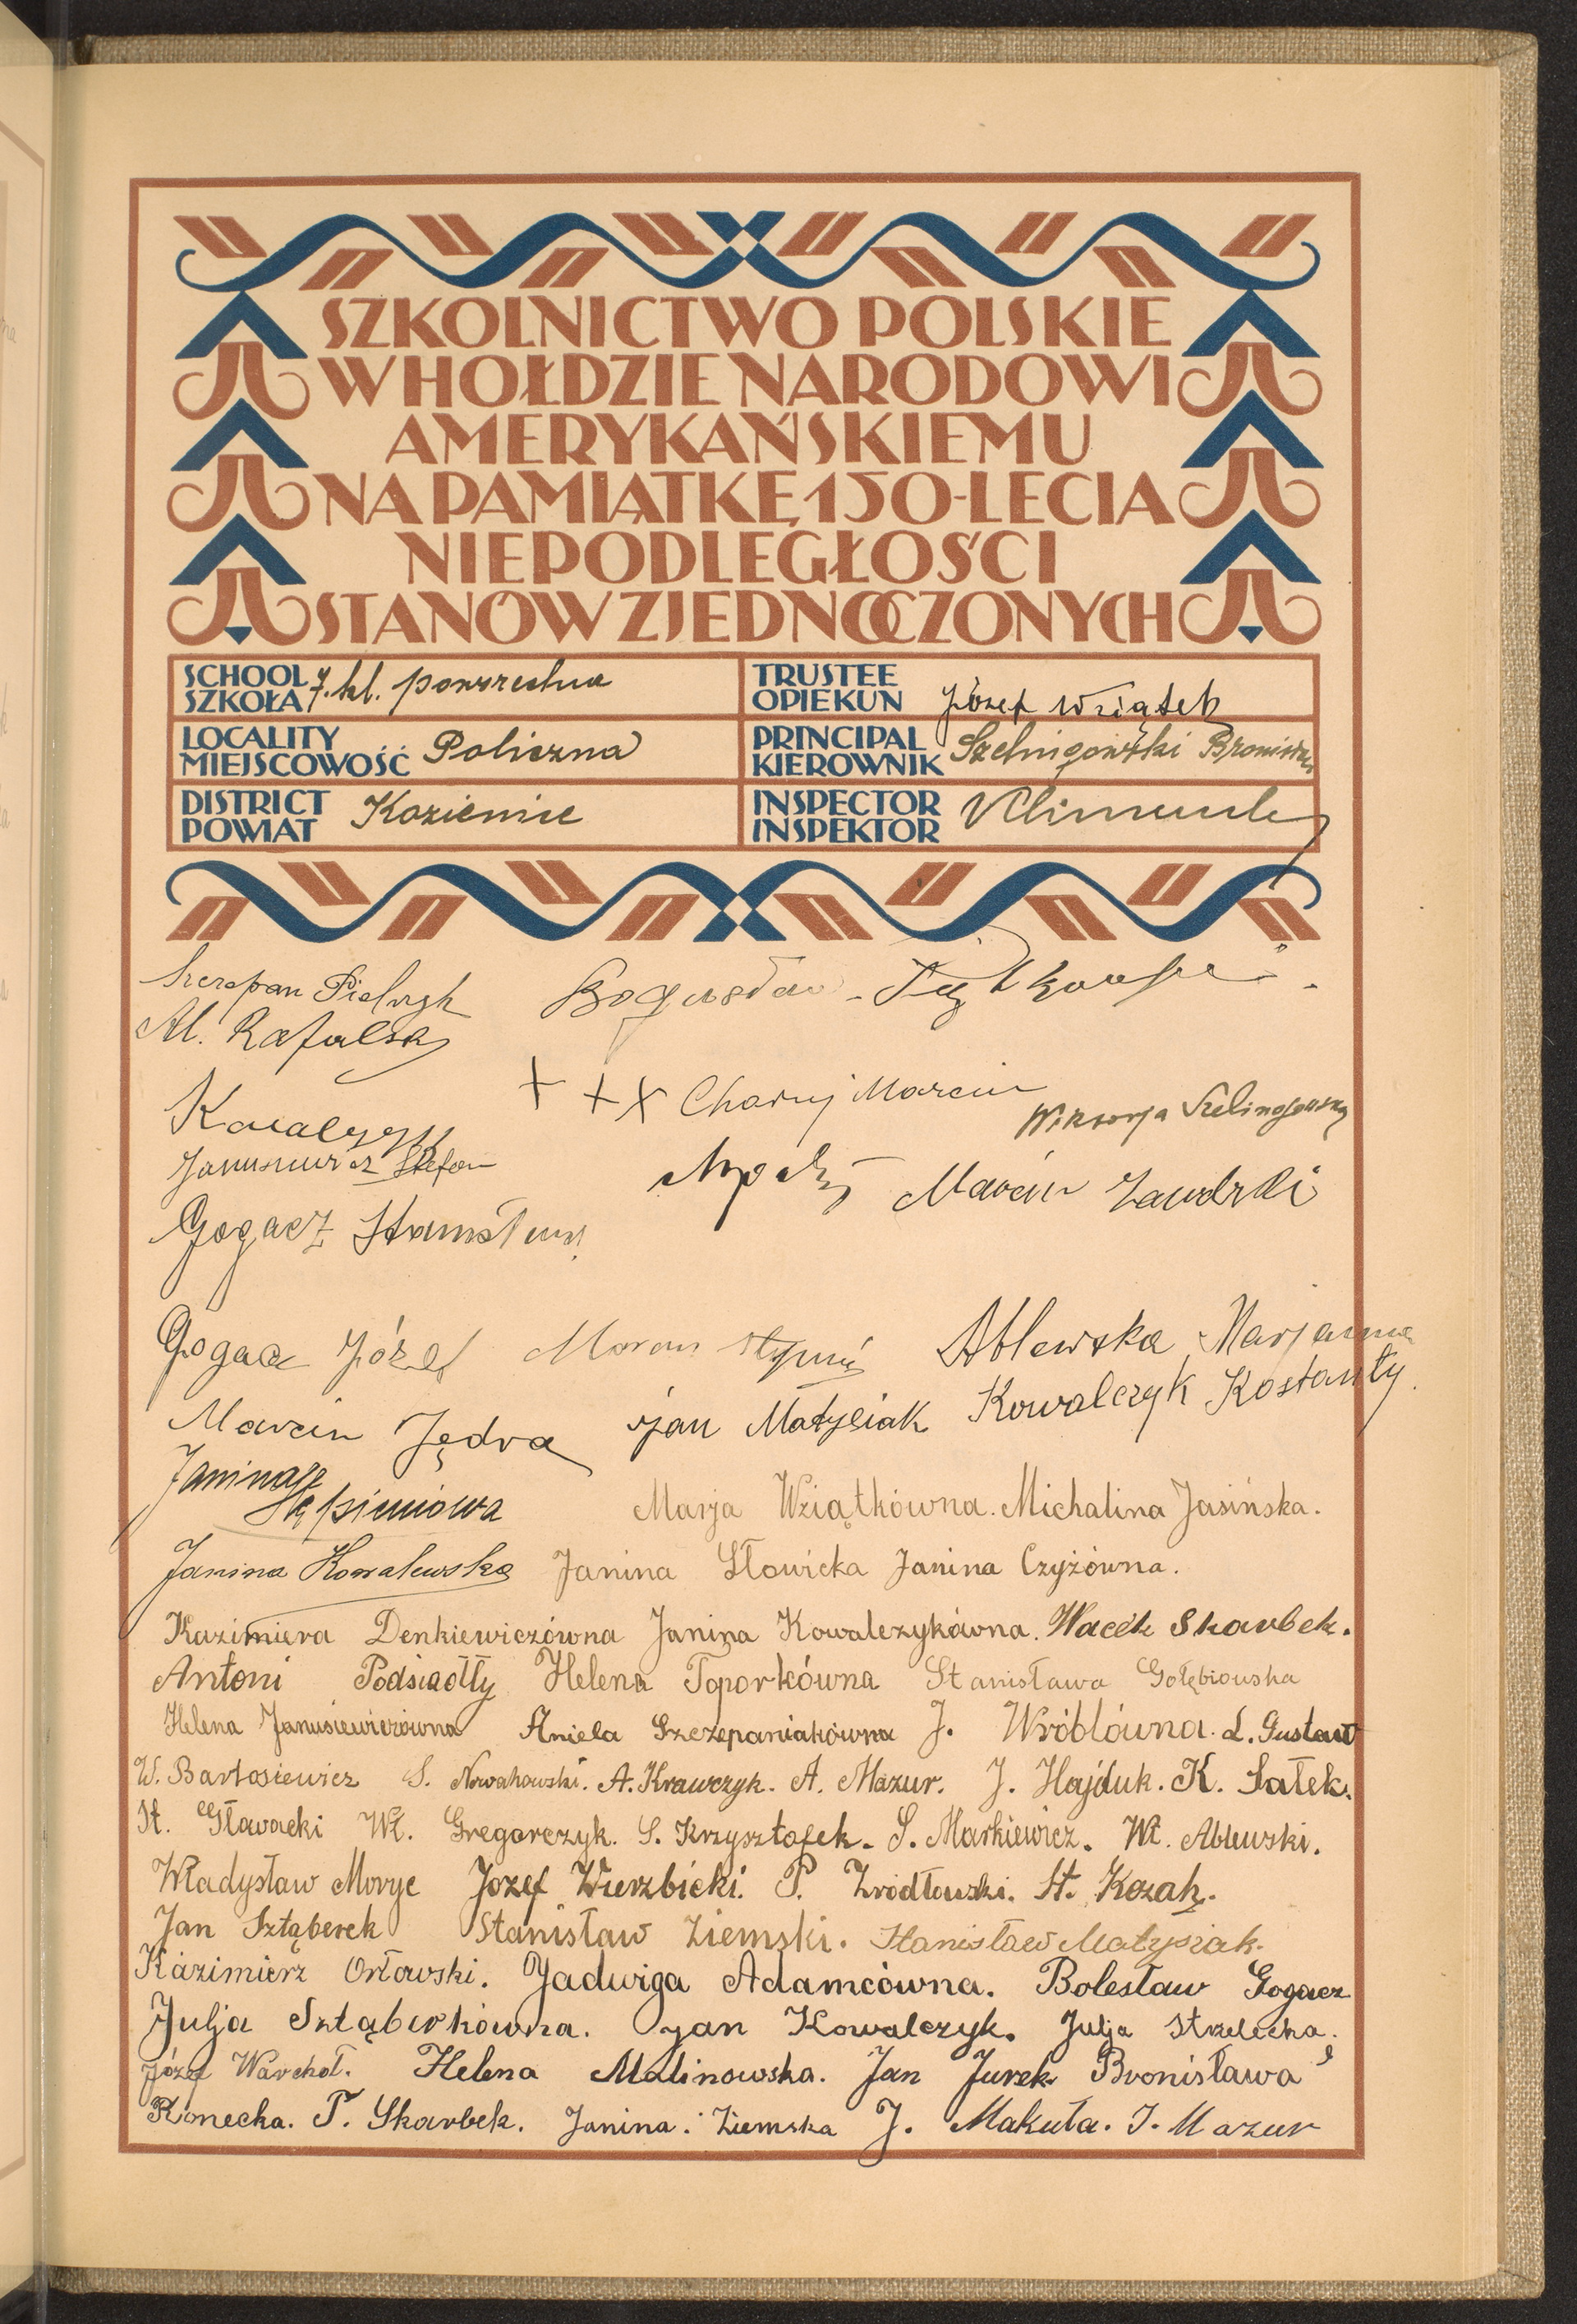 SZKOLNICTWO POLSKIE
W HOŁDZIE NARODOWI
AMERYKAŃSKIEMU
NA PAMIĄTKĘ 150-LECIA
NIEPODLEGŁOŚCI
STANÓW ZJEDNOCZONYCH
SCHOOL SZKOŁA 7. kl. powszechna
TRUSTEE OPIEKUN Józef Wziątek
LOCALITY MIEJSCOWOŚĆ Policzna
PRINCIPAL KIEROWNIK Szelingowski Bronisław
DISTRICT POWIAT Kozienice
INSPECTOR INSPEKTOR
Szczepan Pielszyk Bogusław
Al. Rafalski
+ + x Charyj Marcin
Kowalczyk Wiktorja Szelingowska
Janusiewicz Stefan Marcin Zawdzki
Gogacz Stanisław
Gogacz Józef Moran Ablewska Marjanna
Marcin Jędra Jan Matysiak Kowalczyk Kostanty
Janina
Stępieniowa Marja Wziątkówna. Michalina Jasińska.
Janina Kowalewska Janina Słowicka Janina Czyżówna.
Kazimiera Denkiewiczówna Janina Kowalczykówna. Wacek Skarbek.
Antoni Podsiadły Helena Toporkówna Stanisława Gołębiowska
Helena Janusiewiczówna Aniela Szczepaniakówna J. Wróblówna. L. Gustaw
W. Bartosiewicz S. Nowakowski. A. Krawczyk. A. Mazur. J. Hajduk. K. Sałek.
St. Głowacki Wł. Gregorczyk. S. Krzysztofek. S. Markiewicz. Wł. Ablewski.
Władysław Moryc Józef Wierzbicki. P. Źródłowski. St. Kozak.
Jan Sztąberek Stanisław Ziemski. Stanisław Matysiak.
Kazimierz Orłowski. Jadwiga Adamcówna. Bolesław Gogacz
Julja Sztąberkówna. Jan Kowalczyk. Julja Strzelecka.
Józef Warchoł. Helena Malinowska. Jan Jurek Bronisława
Konecka. T. Skarbek. Janina Ziemska J. Makuła. J. Mazur